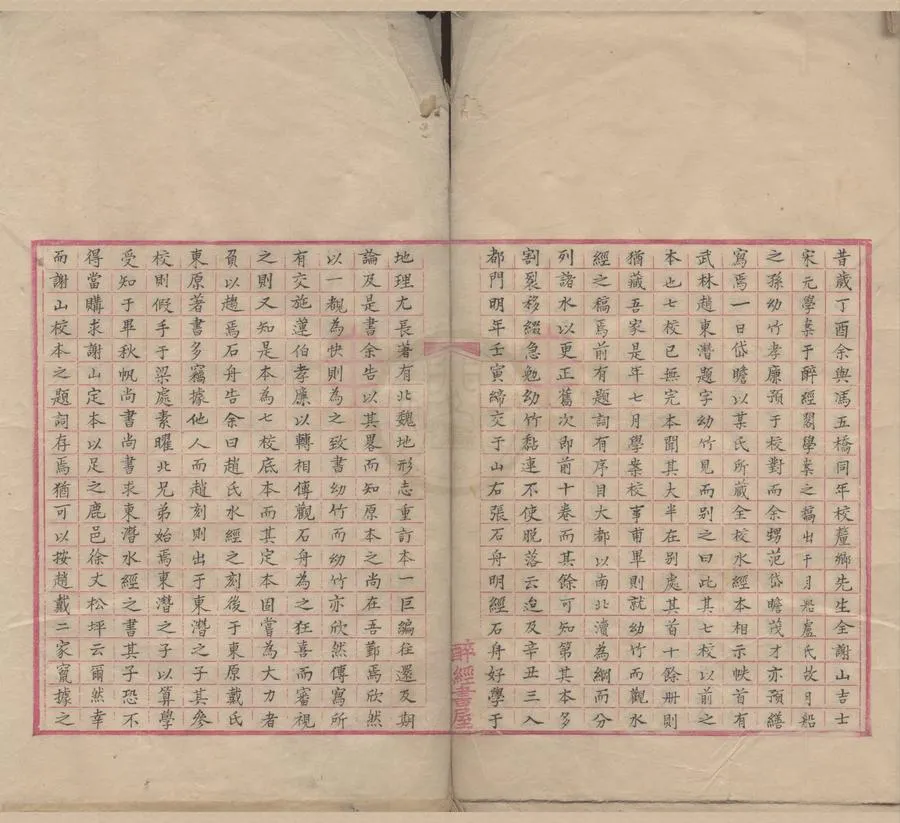 昔歲丁酉余與馮五橋同年校蠶鄉先生全謝山吉士
宋元學案于醉經閣學案之藁出于月船盧氏故月船
之孫幼竹孝廉預于校對而余甥范岱瞻茂才亦預繕
寫焉一日岱瞻以某氏所藏全校水經本相示帙首有
武林趙東潛題字幼竹見而別之曰此其七校以前之
本也七校已無完本聞其大半在別處其首十餘册則
猶藏吾家是年七月學案校事甫畢則就幼竹而觀水
經之稿焉前有題詞有序目大都以南北瀆為綱而分
列諸水以更正舊次即前十卷而其餘可知第其本多
割裂移綴急勉幼竹黏連不使脫落云迨及辛丑三入
都門明年壬寅締交于山右張石舟明經石舟好學于
地理尤長著有北魏地形志重訂本一巨編往還及期
論及是書余告以其畧而知原本之尚在吾鄞焉欣然
以一觀為快則為之致書幼竹而幼竹亦欣然傳寫所
有交施蓮伯孝廉以轉相傳觀石舟為之狂喜而審視
之則又知是本為七校底本而其定本固嘗為大力者
負以趨焉石舟告余曰趙氏水經之刻後于東原戴氏
東原著書多竊據他人而趙刻則出于東潛之子其參
校則假手于梁處素曜北兄弟始焉東潛之子以算學
受知于畢秋帆尚書尚書求東潛水經之書其子恐不
得當購求謝山定本以足之鹿邑徐丈松坪云爾然幸
而謝山校本之題詞存焉猶可以按趙戴二家竄據之
醉經書屋